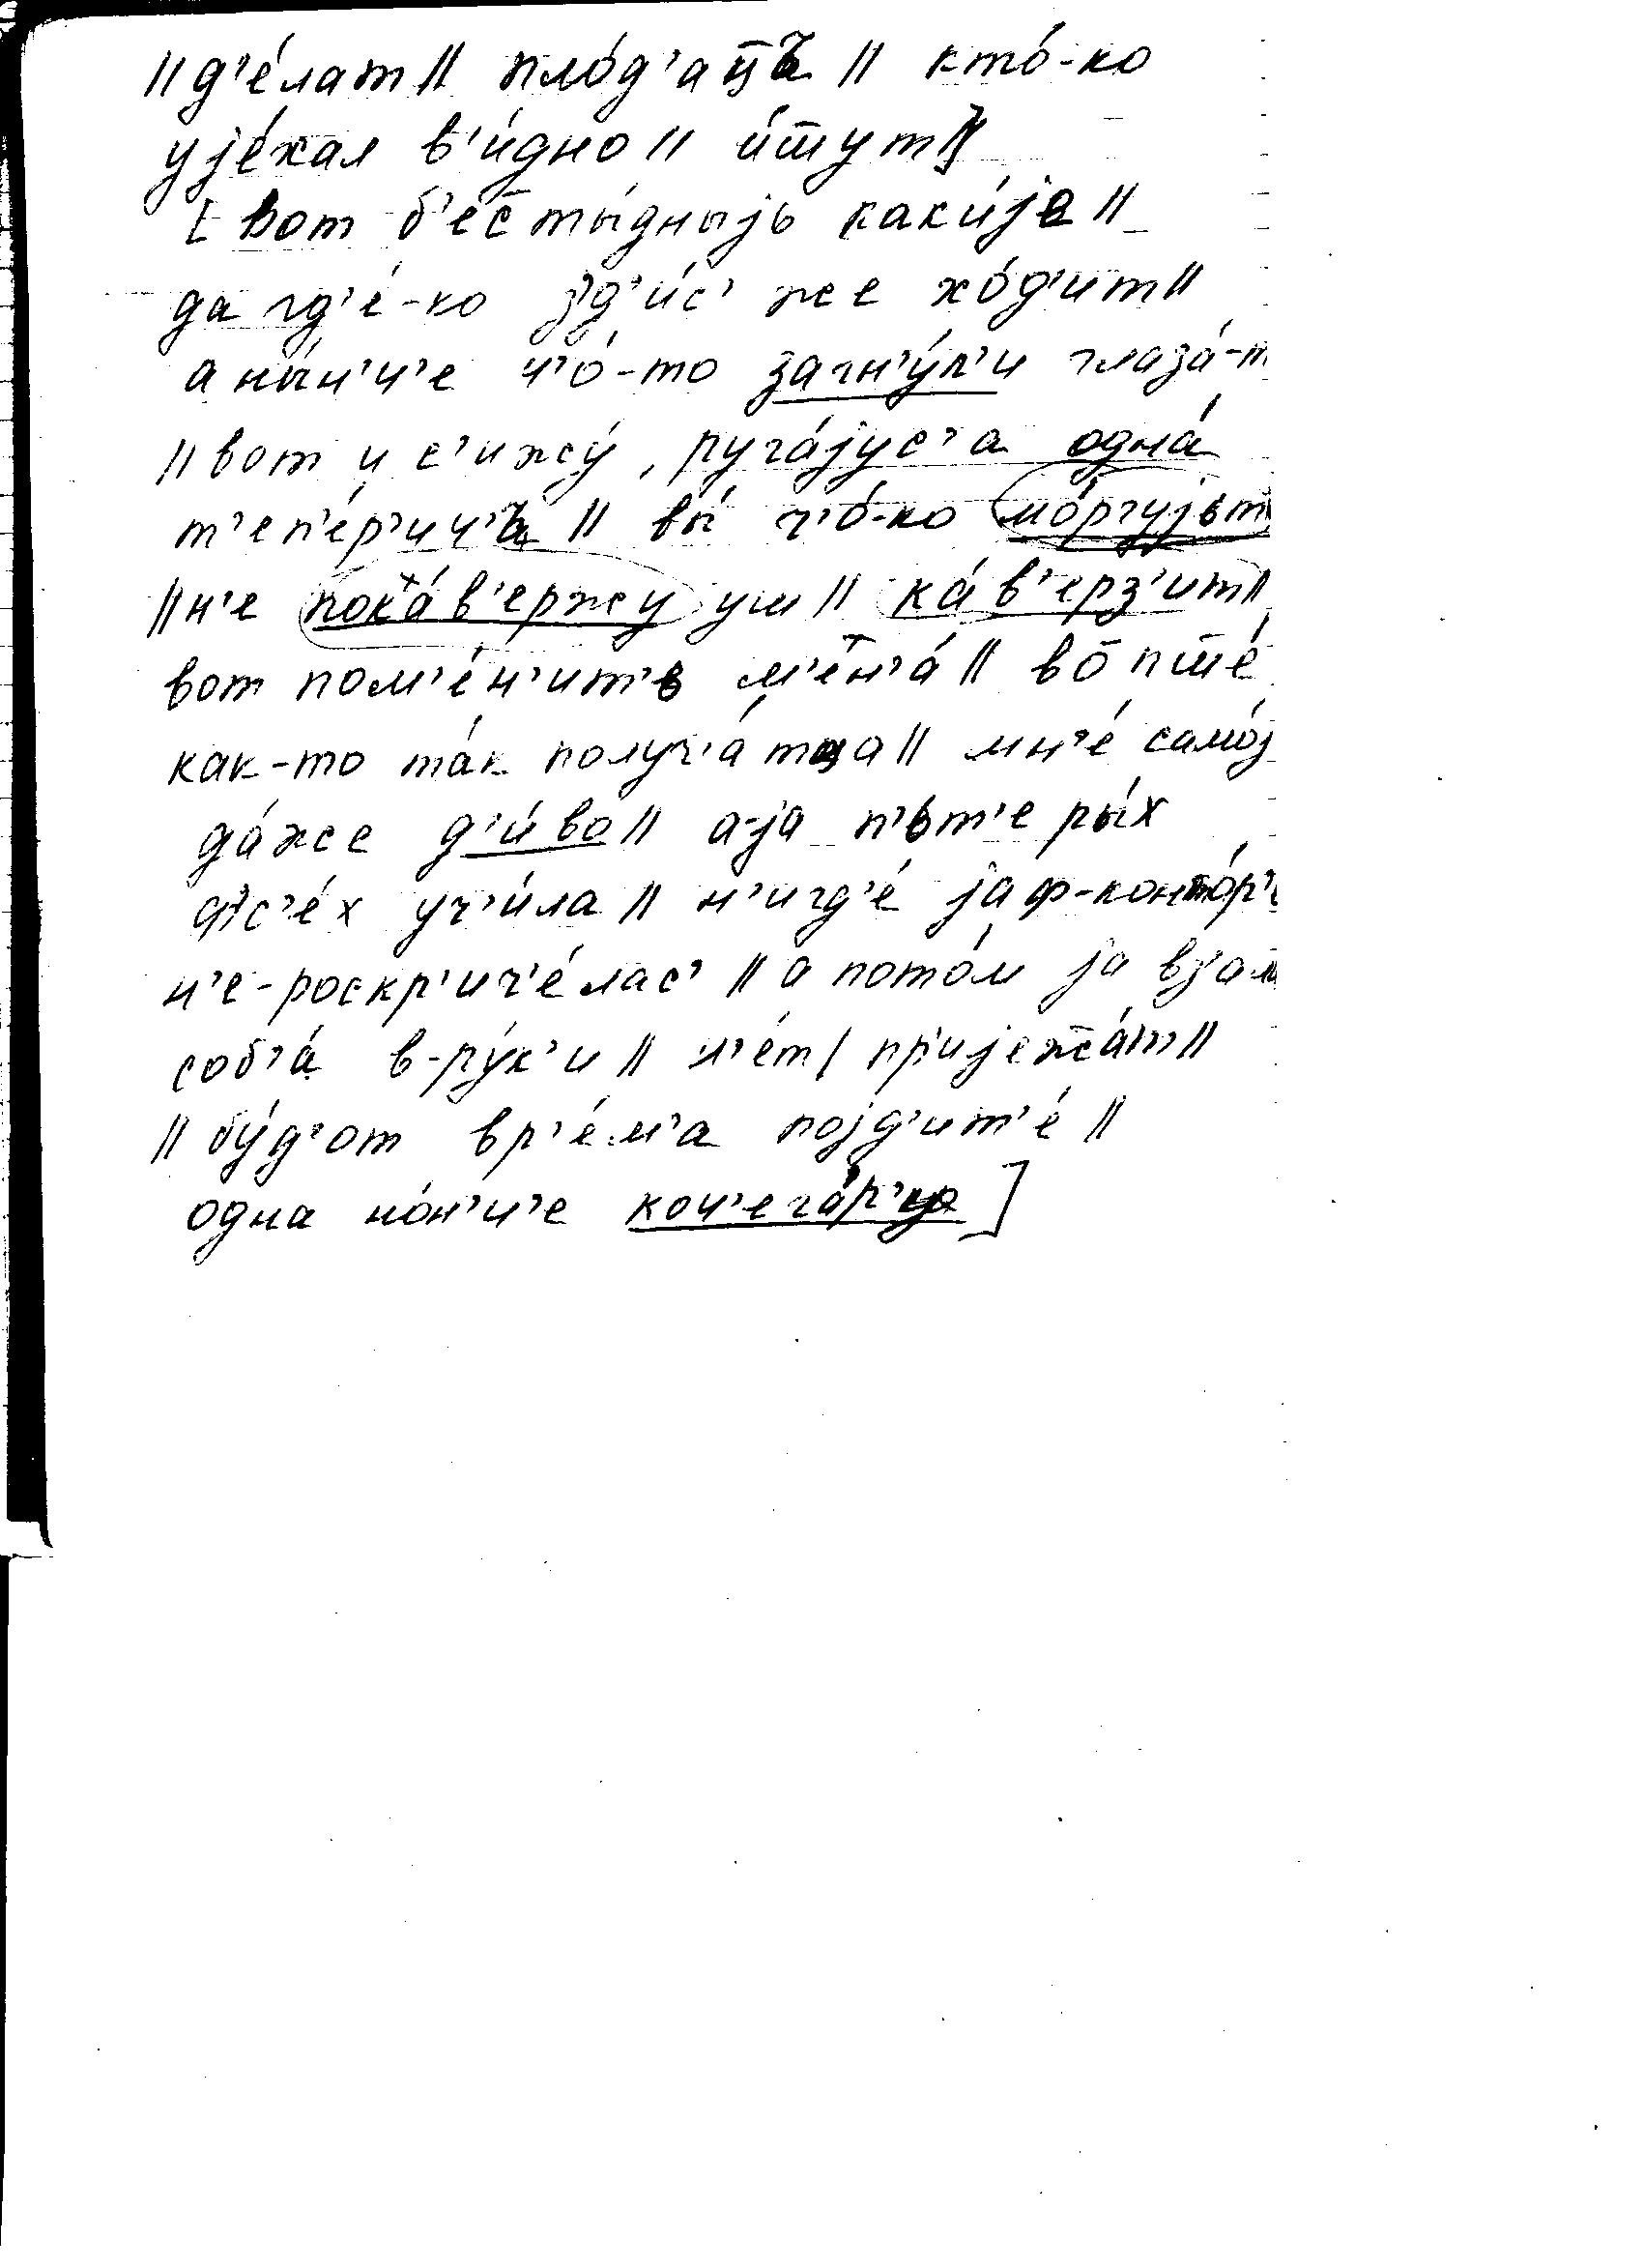 || д'éлат || плóд'ац̅ъ || ктó-ко
ујéхал в'и́дно || и́ш̅ут ||]
[ вот б'ес̅ты́дныјь каки́је ||
да гд'é-ко з'д'и́с' же хóд'ит ||
а ны́н'ч'е ч'ó-то загн'у́л'и глазá-т
|| вот и с'ижу́, ругáјус'а однá
т'еп'éр'ич'ь || вы́ ч'ó-ко мóргујьт
|| н'е покáв'ержу уш || кáв'ерз'ит ||
вот пом'éн'ит'ь м'ен'á || во̅пш̅é
как-то тáк получ'áтца || мн'é самóј
дáже д'и́во || а-ја п'ьт'еры́х
фс'éх уч'и́ла || н'игд'é ја ф-контóр'
н'е-роскр'ич'éлас' || а потóм ја вз'ал
соб'á в-ру́к'и || н'éт | пр'ијеж̅áт ||
|| бу́д'от вр'éм'а појд'ит'é ||
одна нóн'ч'е коч'егáр'ю ]